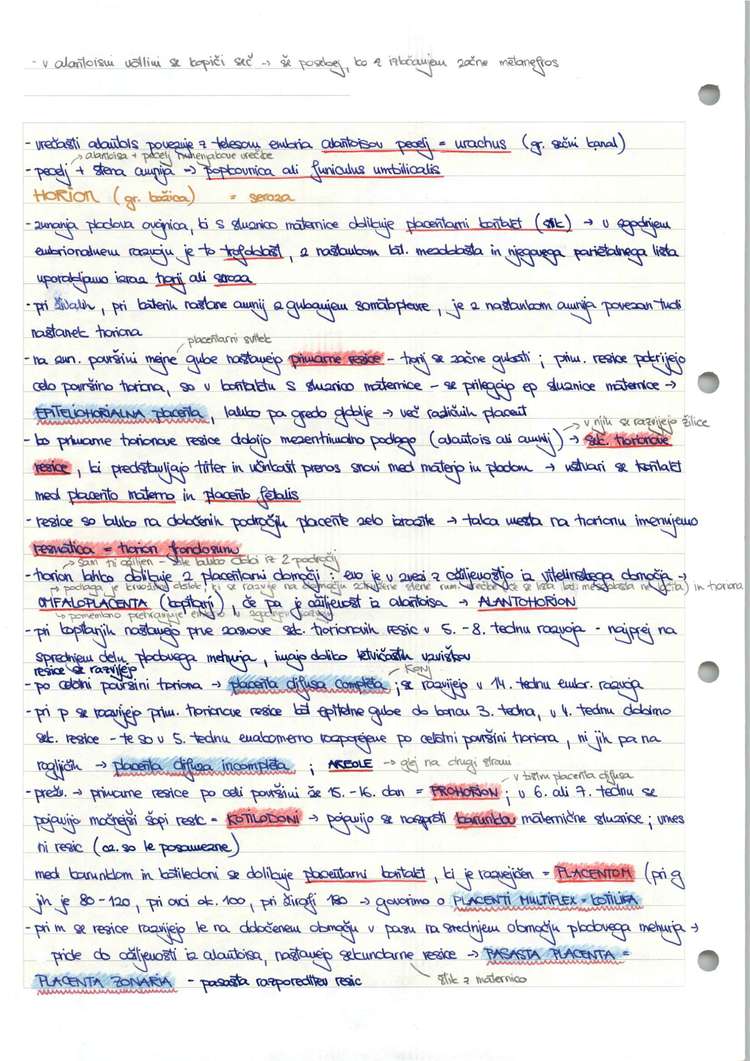 - v alantoisni votlini se kopiči seč → še posebej, ko z izločanjem začne metanefros
- vrečasti alantois povezuje z telesom embria alantoisov pecelj = urachus (gr. sečni kanal)
alantoisa + pecelj rumenjakove vrečke
- pecelj + stena amnija → popkovnica ali funiculus umbilicalis
HORION (gr. kožica) = seroza
- zunanja plodova ovojnica, ki s sluznico maternice oblikuje placentarni kontakt (stik) → v zgodnjem
embrionalnem razvoju je to trofoblast, z nastankom lat. mezoblasta in njegovega parietalnega lista
uporabljamo izraz horij ali seroza
- pri živalih, pri katerih nastane amnij z gubanjem somatoplevre, je z nastankom amnija povezan tudi
nastanek horiona
placentarni svitek
- na zun. površini mejne gube nastanejo primarne resice - horij se začne gubati ; prim. resice pokrijejo
celo površino horiona, so v kontaktu s sluznico maternice - se prilegajo ep sluznice maternice →
EPITELIOHORIALNA placenta, lahko pa gredo globlje → več različnih placent
v njih se razvijejo žilice
- ko primarne horionove resice dobijo mezenhimalno podlago (alantois ali amnij) → sek. horionove
resice, ki predstavljajo hiter in učinkovit prenos snovi med materjo in plodom → ustvari se kontakt
med placento materno in placento fetalis
- resice so lahko na določenih področjih placente zelo izrazite → taka mesta na horionu imenujemo
resnatica = horion frondosum
sam ni ožiljen - žile lahko dobi iz 2 področij
- horion lahko oblikuje 2 placentarni območji : eno je v zvezi z ožiljenostjo iz vitelinskega območja →
OMFALOPLACENTA (kopitarji), če pa je ožiljenost iz alantoisa → ALANTOHORION
pomembno prehranjuje embrio v zgodnjem razvoju
- pri kopitarjih nastanejo prve zasnove sek. horionovih resic v 5. - 8. tednu razvoja - najprej na
sprednjem delu plodovega mehurja, imajo obliko letvičastih vzviškov
resice se razvijejo
konj
- po celotni površini horiona → placenta difusa completa ; se razvijejo v 14. tednu embr. razvoja
- pri p se razvijejo prim. horionove resice kot epitelne gube do konca 3. tedna, v 4. tednu dobimo
sek. resice - te so v 5. tednu enakomerno razporejene po celotni površini horiona, ni jih pa na
rogljičih → placenta difusa incompleta ; AREOLE → glej na drugi strani
v bistvu placenta difusa
- prežv. → primarne resice po celi površini že 15. - 16. dan = PROHORION ; v 6. ali 7. tednu se
pojavijo močnejši šopi resic = KOTILEDONI → pojavijo se nasproti karunklov maternične sluznice ; vmes
ni resic (oz. so le posamezne)
med karunklom in kotiledoni se oblikuje placentarni kontakt, ki je razvejičen = PLACENTOM (pri g
jih je 80 - 120, pri ovci ok. 100, pri žirafi 180 → govorimo o PLACENTI MULTIPLEX = KOTILIFA
- pri m se resice razvijejo le na določenem območju v pasu na srednjem območju plodovega mehurja →
pride do ožiljenosti iz alantoisa, nastanejo sekundarne resice → PASASTA PLACENTA =
PLACENTA ZONARIA - pasasta razporeditev resic
stik z maternico